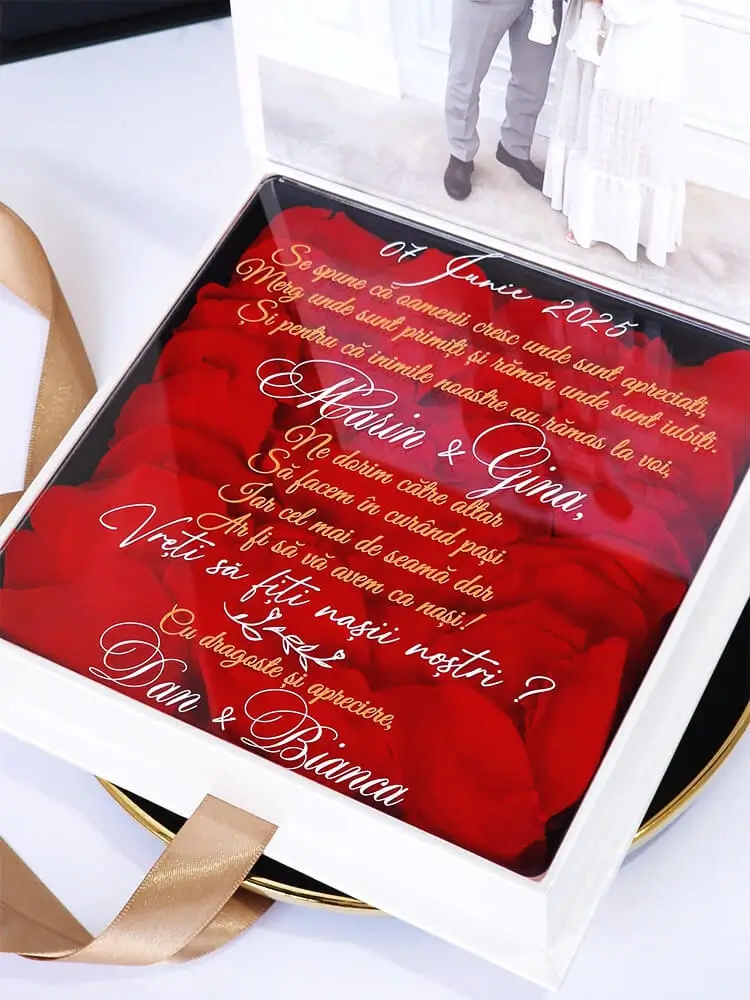 07 Iunie 2025
Se spune că oamenii cresc unde sunt apreciați,
Merg unde sunt primiți și rămân unde sunt iubiți.
Și pentru că inimile noastre au rămas la voi,
Marin & Gina,
Ne dorim către altar
Să facem în curând pași
Iar cel mai de seamă dar
Ar fi să vă avem ca nași!
Vreți să fiți nașii noștri ?
Cu dragoste și apreciere,
Dan & Bianca